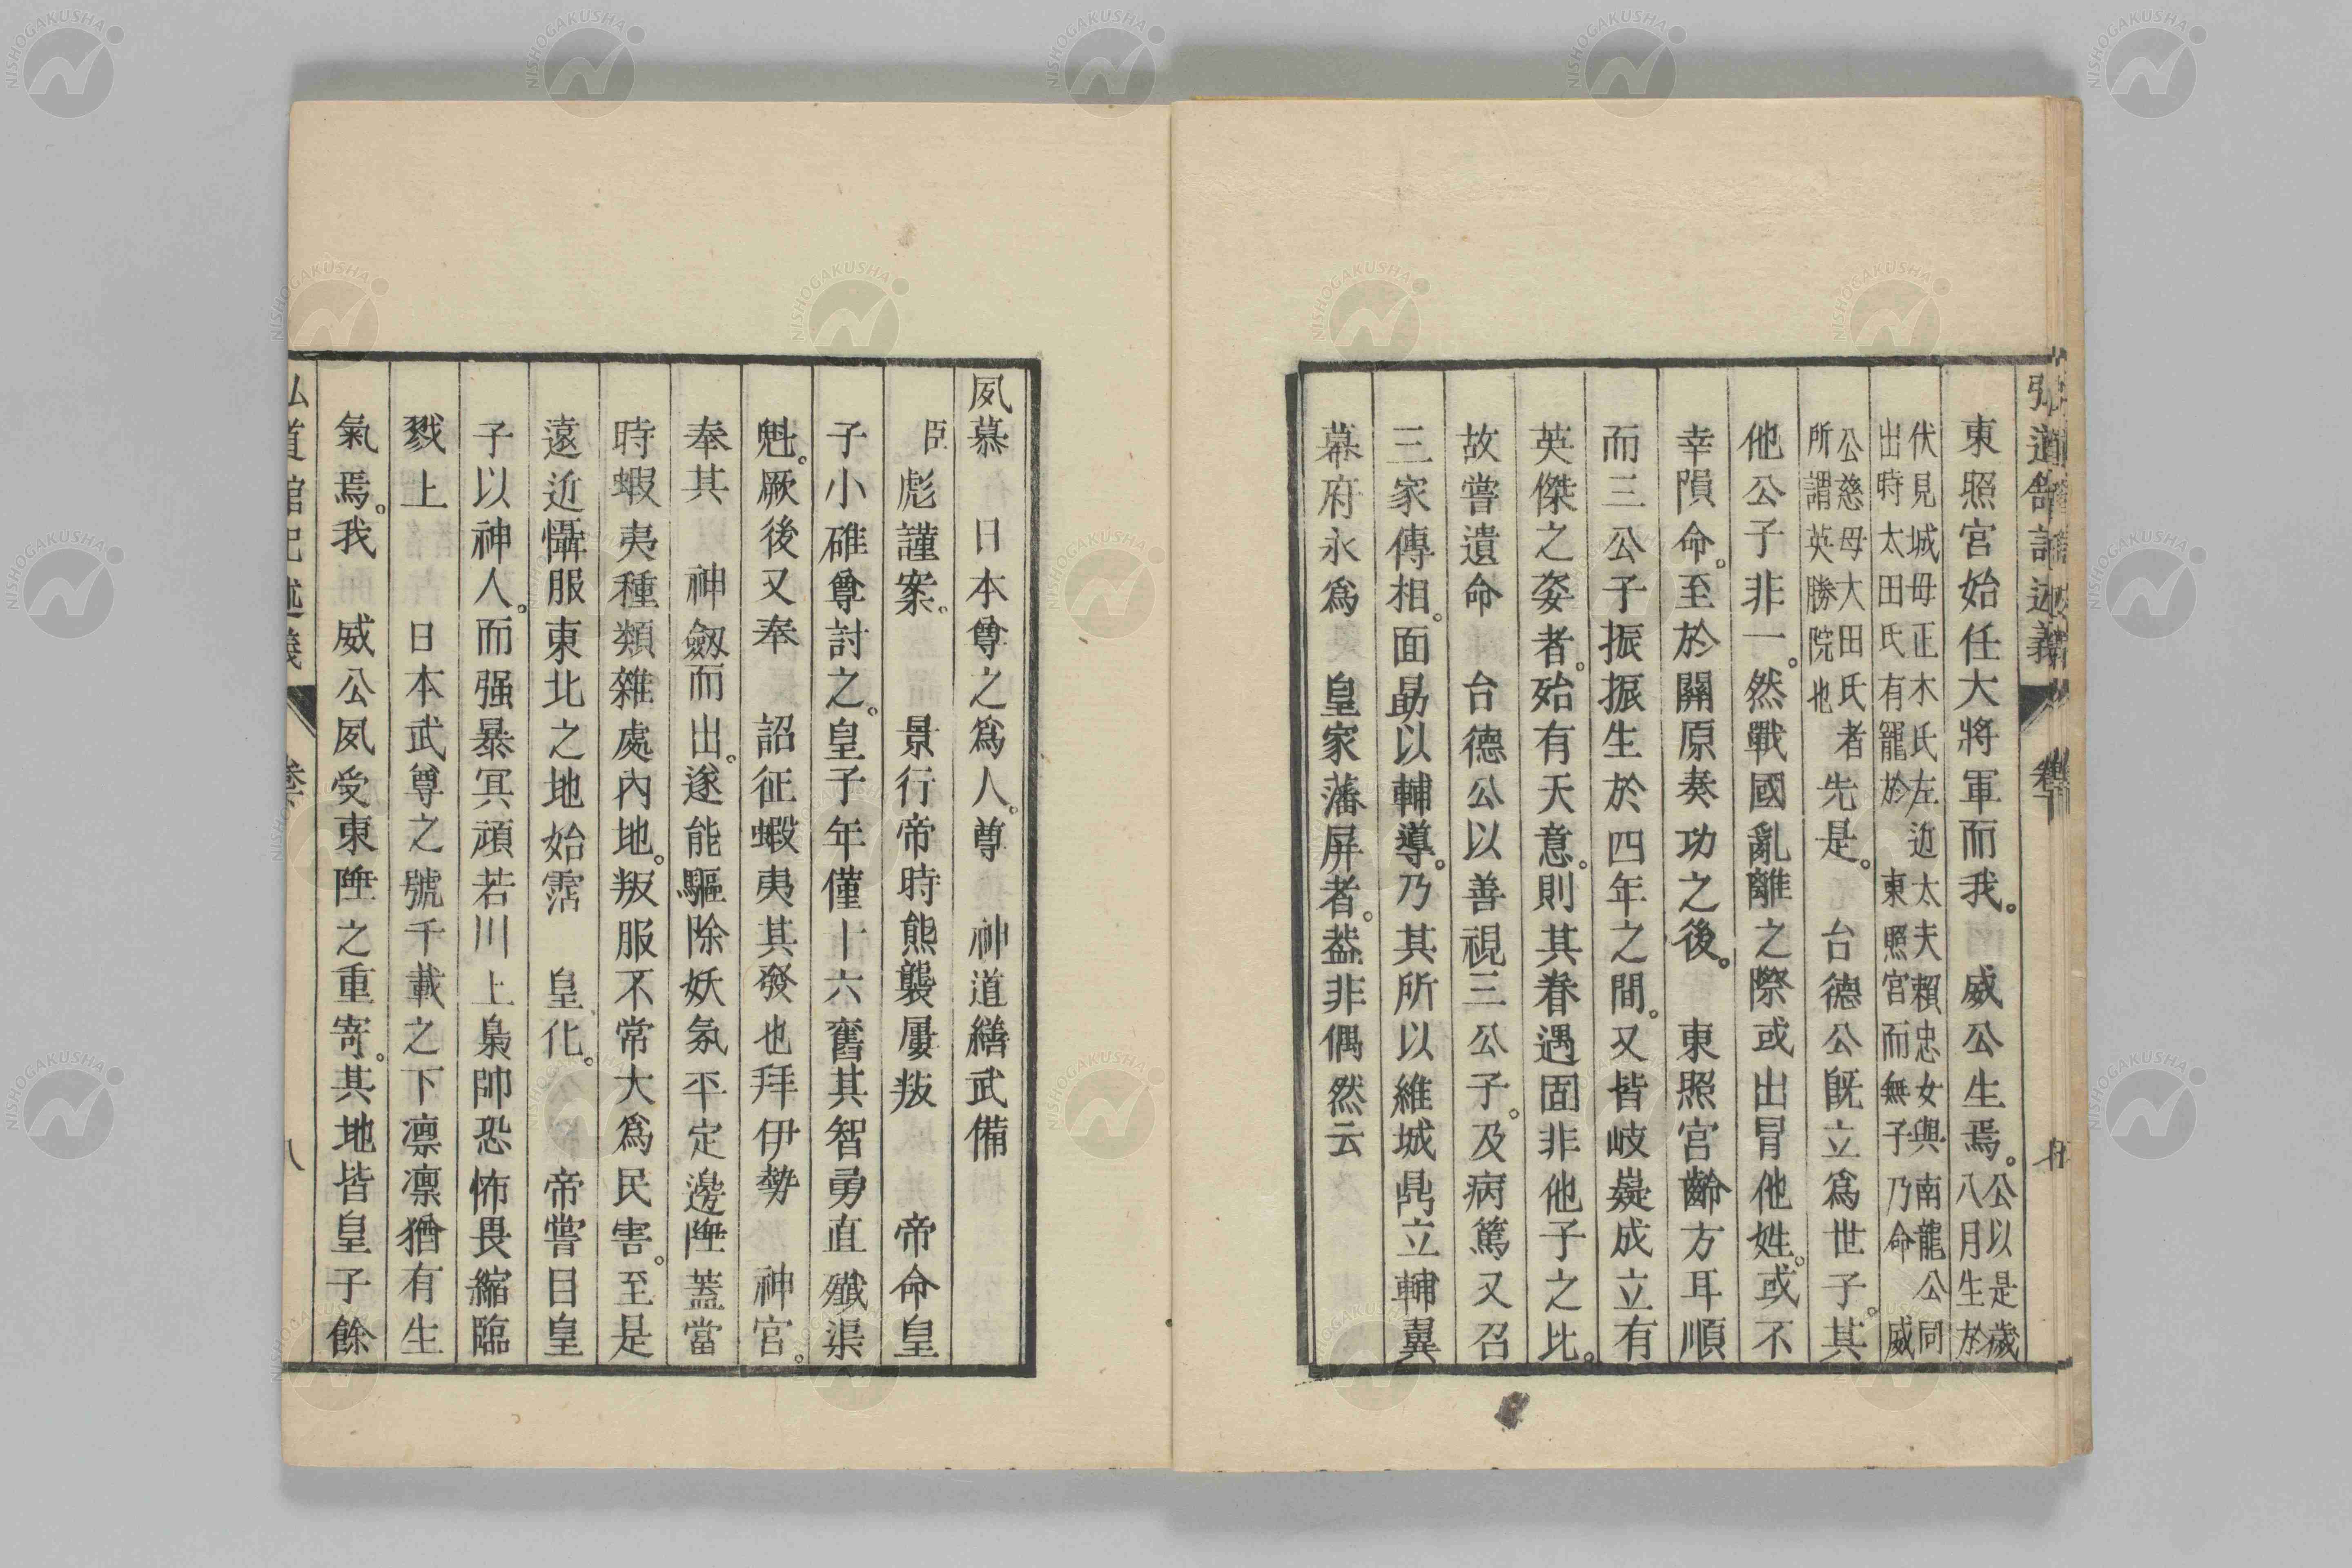 東照宮始任大將軍而我。威公生焉。公以是歲八月生於
伏見城母正木氏左近太夫賴忠女與南龍公同
出時太田氏有寵於東照宮而無子乃命威
公慈母大田氏者
所謂英勝院也
先是。台德公既立爲世子。其
他公子非一。然戰國亂離之際或出冒他姓。或不
幸隕命。至於關原奏功之後。東照宮齡方耳順
而三公子振振生於四年之間。又皆岐嶷成立有
英傑之姿者。殆有天意。則其眷遇固非他子之比。
故嘗遺命台德公以善視三公子。及病篤又召
三家傳相。面勗以輔導。乃其所以維城鼎立輔翼
幕府永爲皇家藩屏者。蓋非偶然云
夙慕日本尊之爲人。尊神道繕武備
臣彪謹案。景行帝時熊襲屢叛帝命皇
子小碓尊討之。皇子年僅十六舊其智勇直殲渠
魁。厥後又奉詔征蝦夷其發也拜伊勢神宮。
奉其神劔而出。遂能驅除妖氛平定邊陲蓋當
時蝦夷種類雜處內地。叛服不常大爲民害。至是
遠近懾服東北之地始霑皇化。帝嘗目皇
子以神人。而强暴冥頑若川上梟帥恐怖畏縮臨
戮上日本武尊之號千載之下凛凛猶有生
氣焉。我威公夙受東陲之重寄。其地皆皇子餘
弘道館記述義 卷下 八